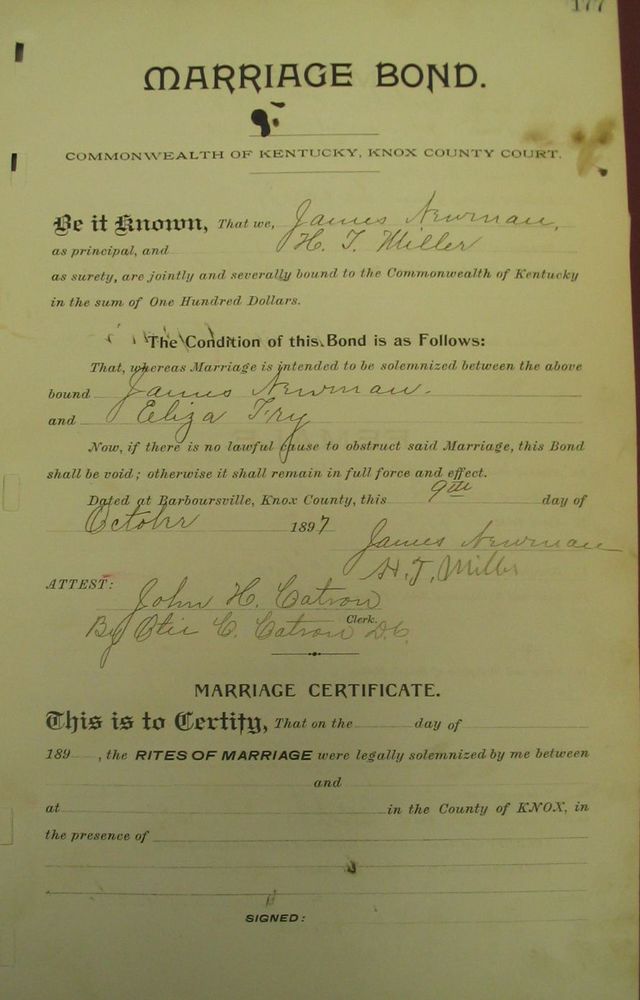 177
MARRIAGE BOND.
COMMONWEALTH OF KENTUCKY, KNOX COUNTY COURT.
Be it Known, That we, James Newman,
as principal, and H. T. Miller
as surety, are jointly and severally bound to the Commonwealth of Kentucky
in the sum of One Hundred Dollars.
The Condition of this Bond is as Follows:
That, whereas Marriage is intended to be solemnized between the above
bound James Newman.
and Eliza Fry
Now, if there is no lawful cause to obstruct said Marriage, this Bond
shall be void; otherwise it shall remain in full force and effect.
Dated at Barboursville, Knox County, this 9th day of
Octobr 1897
James Newman
H. T. Miller
ATTEST: John H. Catron
Clerk.
By Otis C. Catron D.C.
MARRIAGE CERTIFICATE.
This is to Certify, That on the day of
189 , the RITES OF MARRIAGE were legally solemnized by me between
and
at in the County of KNOX, in
the presence of
SIGNED: